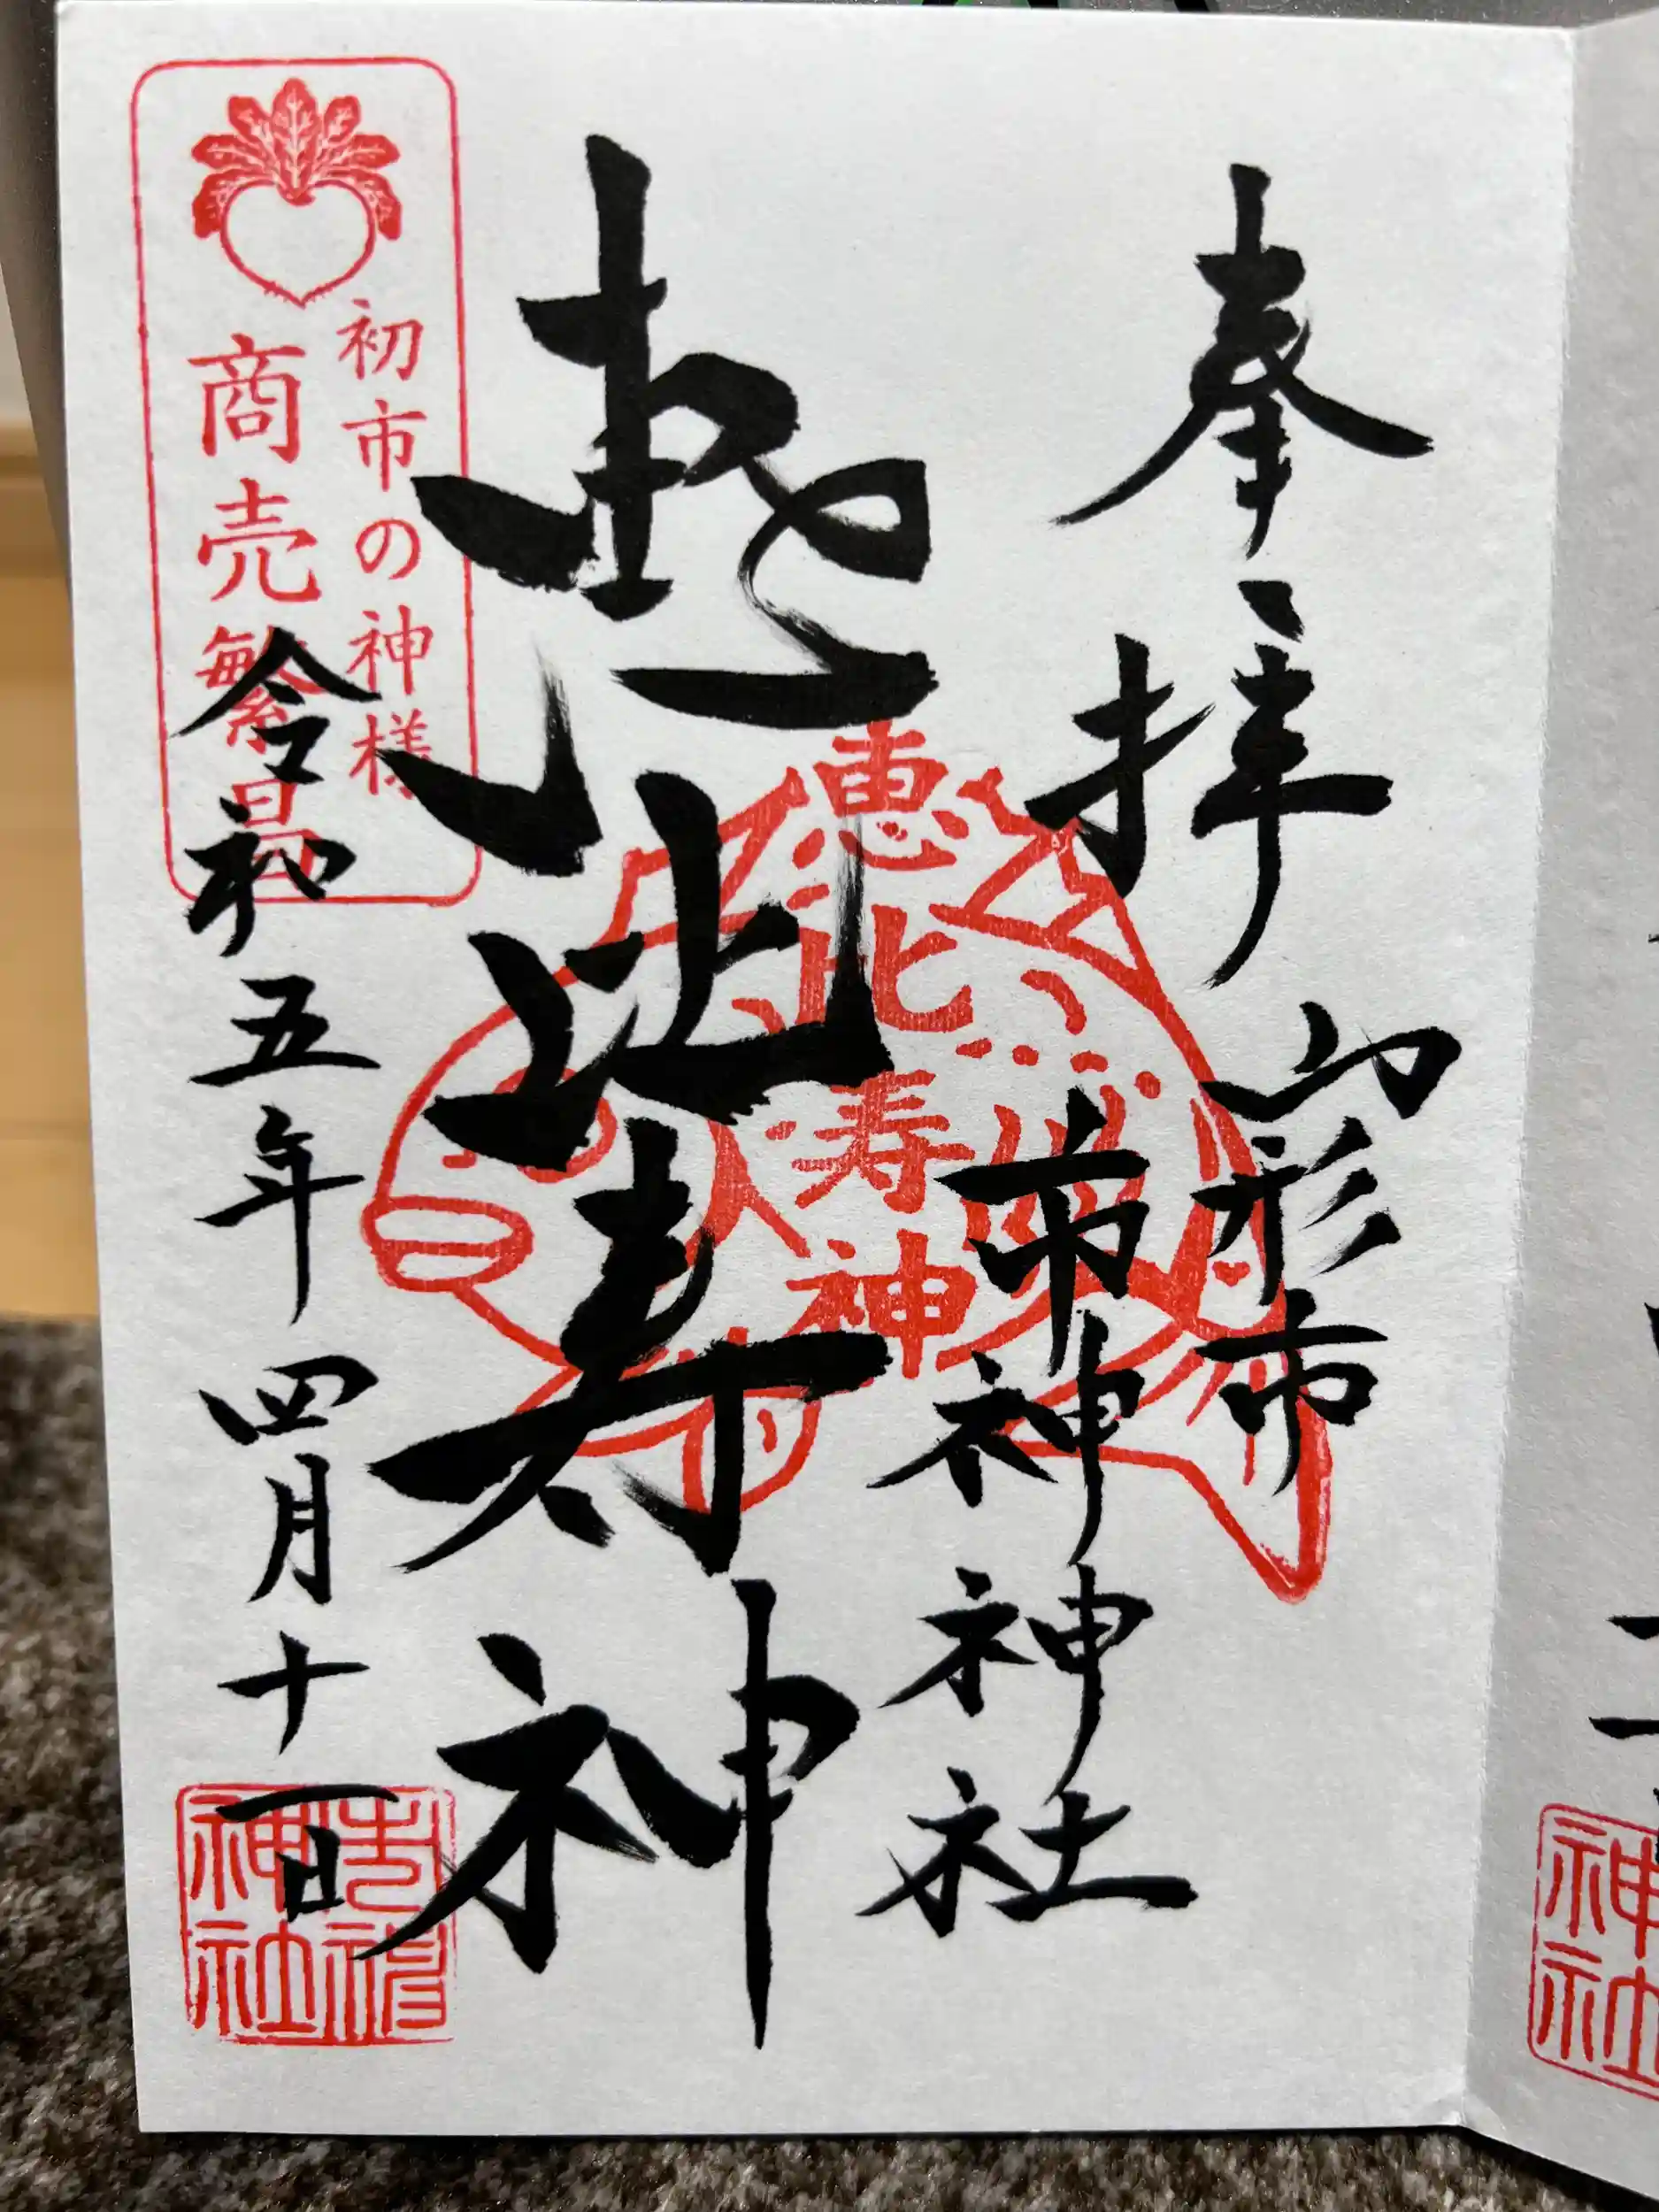 奉拝
山形市
市神神社
恵比寿神
恵比寿神
初市の神様
商売繁昌
令和五年四月十一日
市神
神社